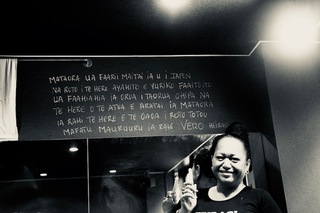 MATAORA UA FAARII MAITAI IA U I JAPON
NA ROTO I TE HERE AYAHITO E YURIKO FAAITOITO
UA FAAHIAHIA IA ORUA I TAORUA OHIPA NA
TE HERE O TE ATUA E ARATAI IA MATAORA
IA RAHI TE HERE E TE I ROTO TOTOU
MAFATU MAURUURU IA RAHI VERO